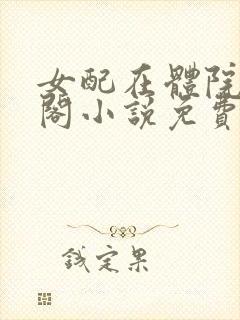 女配在體院
閣小說免費
錢定果